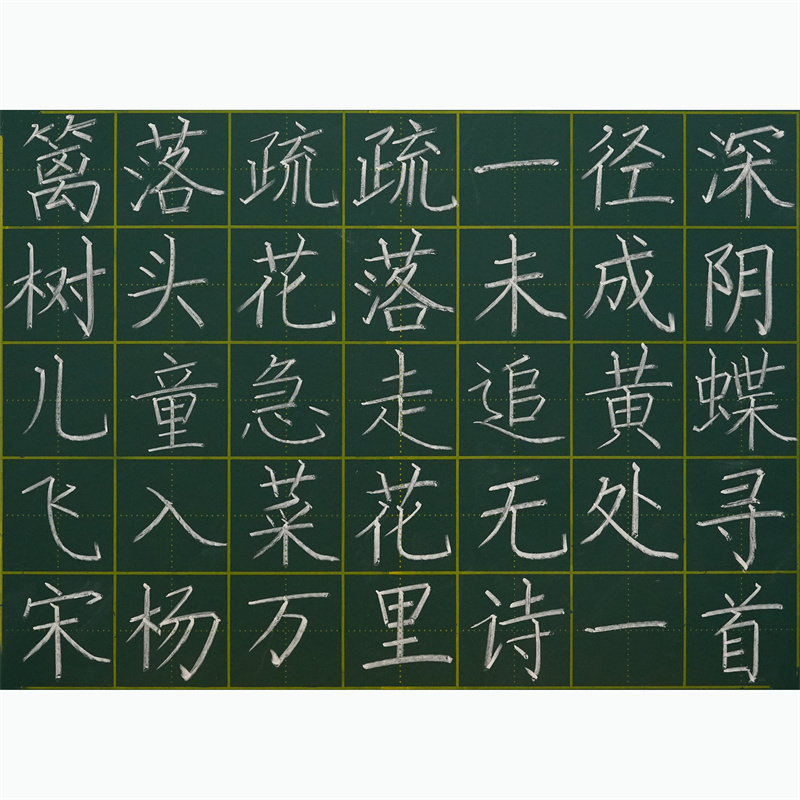 篱落疏疏一径深
树头花落未成阴
儿童急走追黄蝶
飞入菜花无处寻
宋杨万里诗一首